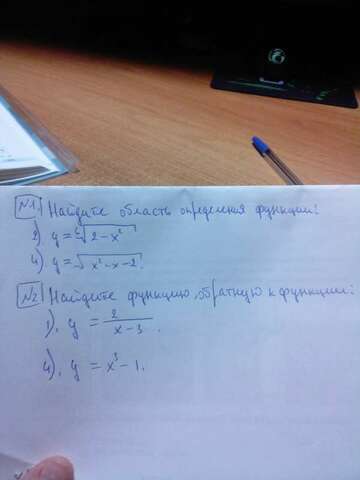 №1 Найдите область определения функции:
2) y = ⁶√(2-x²).
4) y = √(x²-x-2).
№2 Найдите функцию, обратную к функции:
1), y = 2/(x-3).
4), y = x³-1.